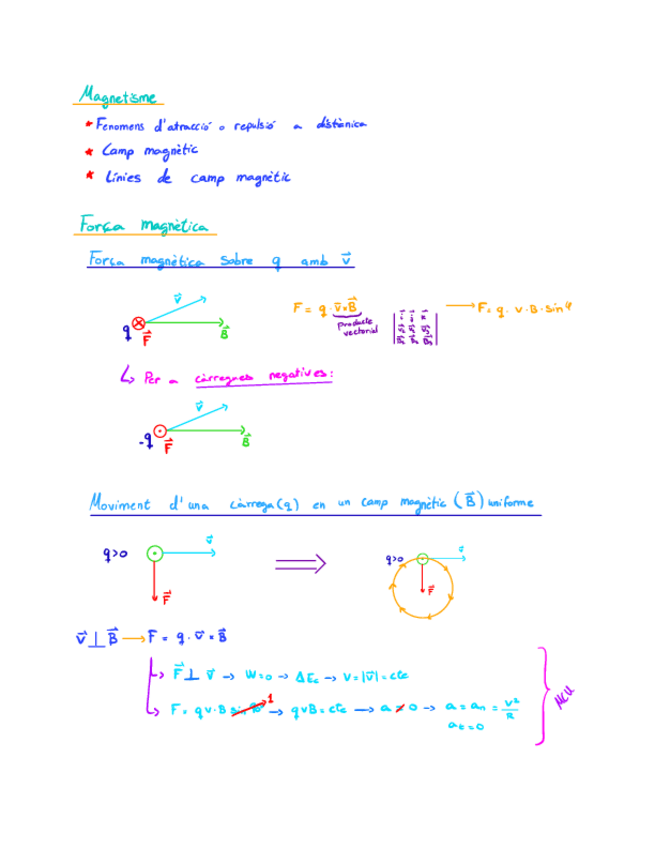 Magnetisme
* Fenomens d'atracció o repulsió a distància
* Camp magnètic
* Línies de camp magnètic
Força magnètica
Força magnètica sobre q amb v⃗
v⃗
q F⃗ B⃗
F = q · v⃗ × B⃗ → F = q · v · B · sin φ
Producte vectorial
↳ Per a càrregues negatives:
v⃗
-q F⃗ B⃗
Moviment d'una càrrega (q) en un camp magnètic (B⃗) uniforme
q>0 v⃗ ⇒ q>0 v⃗
F⃗ F⃗
v⃗ ⊥ B⃗ → F = q · v⃗ × B⃗
↳ F⃗ ⊥ v⃗ → W=0 → ΔEc → V=|v⃗|=cte
↳ F = q v · B sin 90° 1 → qvB = cte → a ≠ 0 → a = an = v²/R
at = 0
MCU